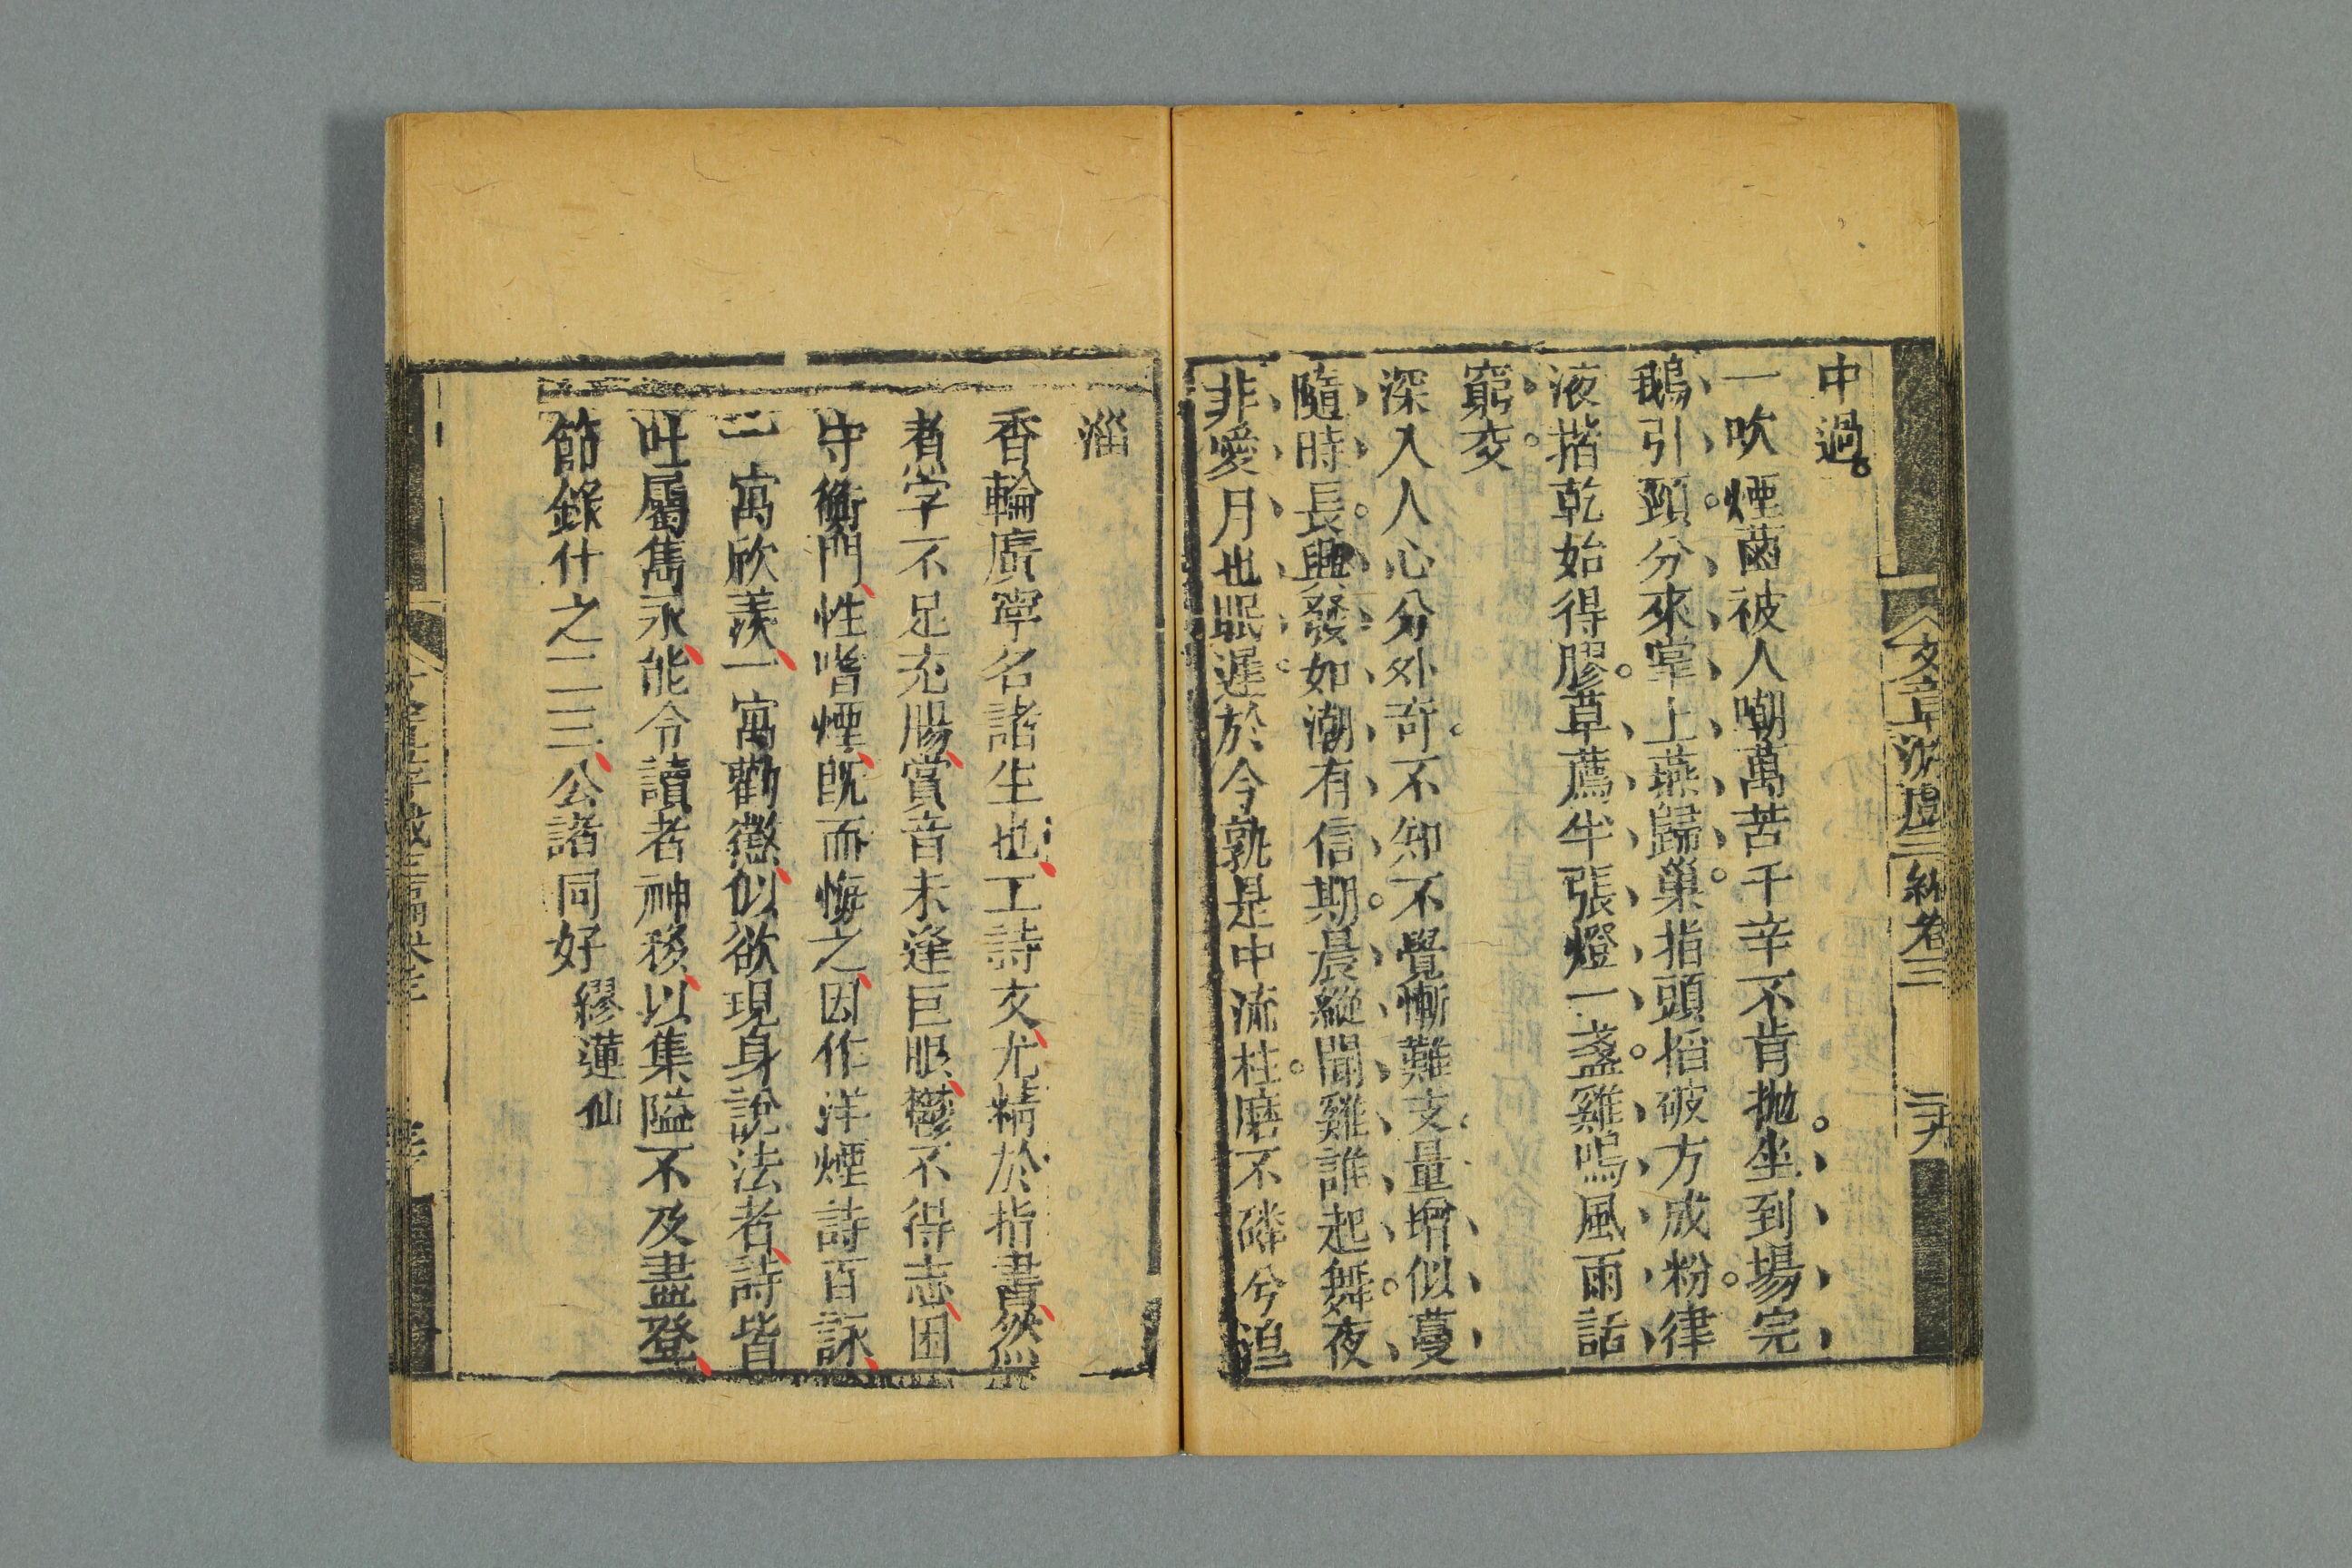 中過
一吹煙菌被人嘲萬苦千辛不肯拋坐到場完
鵝引頸分來掌上燕歸巢指頭掐破方成粉律
液揩乾始得膠草薦牛張燈一盞雞鳴風雨話
窮交
深入人心分外奇不知不覺慚難支量增似蔓
隨時長興發如潮有信期晨縱聞雞誰起舞夜
非愛月也眠遲於今孰是中流柱磨不磷兮湼
文章游戲三編卷三
二九
淄
香輪廣寧名諸生也工詩文尤精於指畫然
煮字不足充腸賞音未逢巨眼鬱不得志困
守衡門性嗜煙既而悔之因作洋煙詩百詠
一寓欣羨一寓勸懲似欲現身說法者詩皆
吐屬雋永能令讀者神移以集隘不及盡登
節錄什之二三公諸同好
繆蓮仙